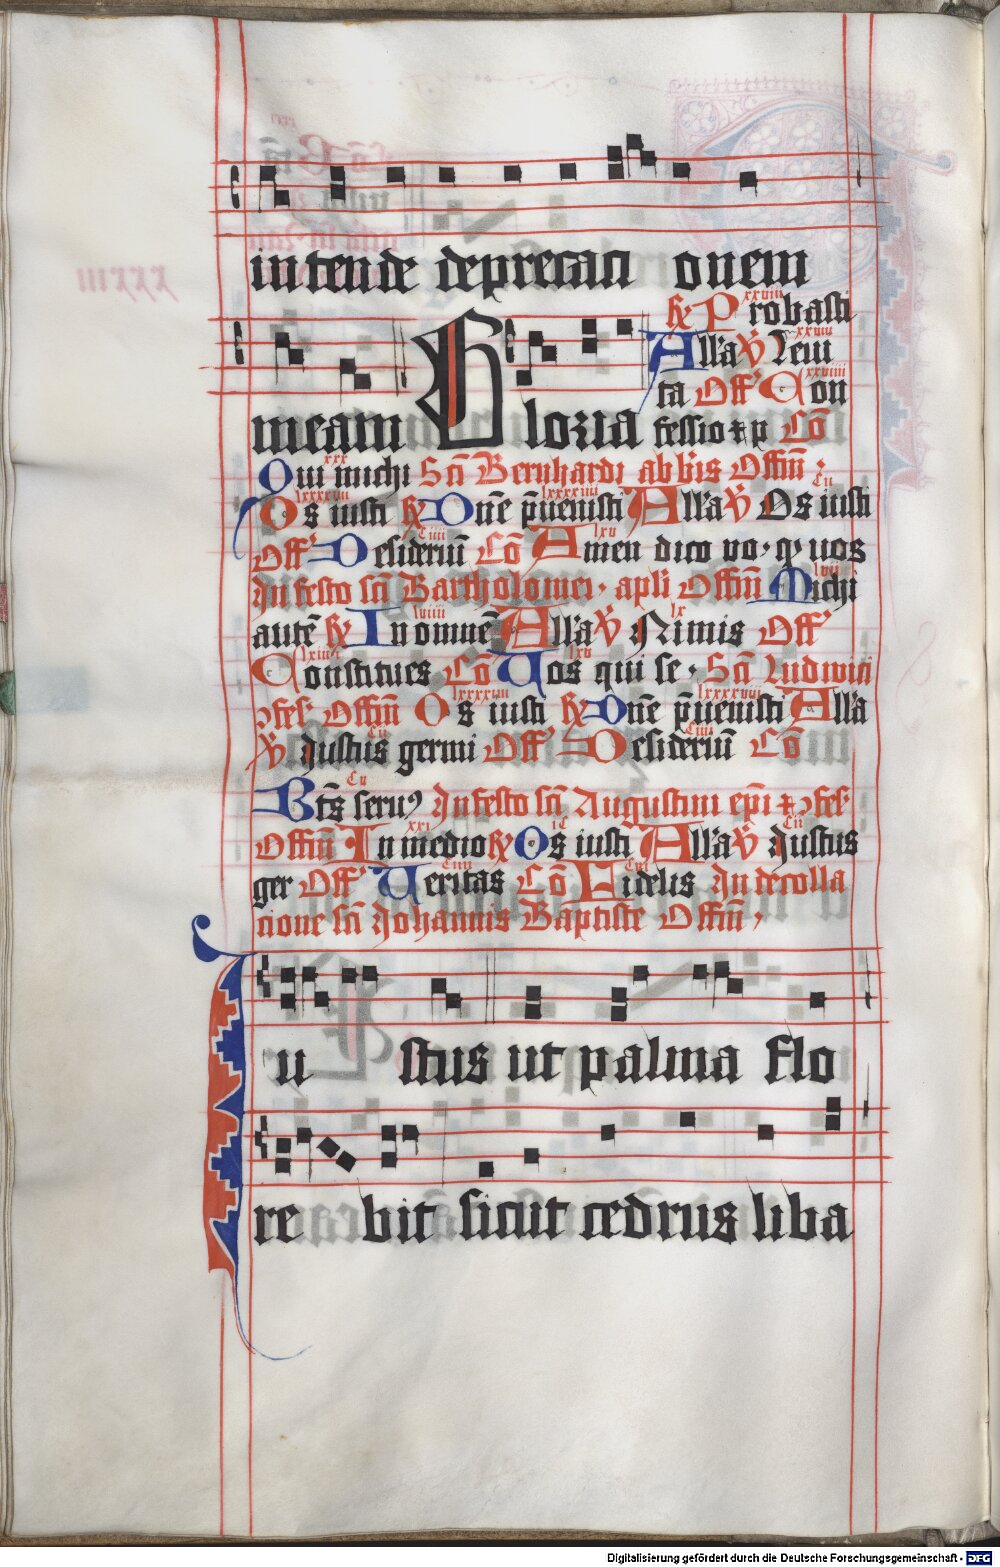 intende deprecati onem
xxviii
R̸ Probasti
meam Gloria
xxviii
Alla V̸ Levi
xxviiii
ta Off' Con
fessio et p Cō
xxx
Qui michi Sci̅ Bernhardi abbis Offm̄
lxxxxviii lxxxxiiii Cii
Os iusti R̸ Dn̄e p̄uenisti Alla V̸ Os iusti
Ciiii lxv
Off' Desideriū Cō Amen dico vo. q vos
In festo sci̅ Bartholomei. apli Offm̄ Michi
lviiii lx
autē R̸ In omnē Alla V̸ Nimis Off'
lxiii lxv
Constitues Cō Vos qui se. Sci̅ Ludwici
lxxxxviii lxxxxviii
ɔfes. Offm̄ Os iusti R̸ Dn̄e p̄uenisti Alla
Cii Ciiii
V̸ Iustus germi Off' Desideriū Cō
Cv
Bt̄s seruꝰ In festo sci̅ Augustini ep̄i et ɔfes.
xxi iC Cii
Offm̄ In medio R̸ Os iusti Alla V̸ Iustus
Ciiii Cvi
ger Off' Veritas Cō Fidelis In decolla
tione sci̅ Johannis Baptiste Offm̄
Iu stus ut palma flo
re bit sicut cedrus liba
XXXIII
Digitalisierung gefördert durch die Deutsche Forschungsgemeinschaft - DFG